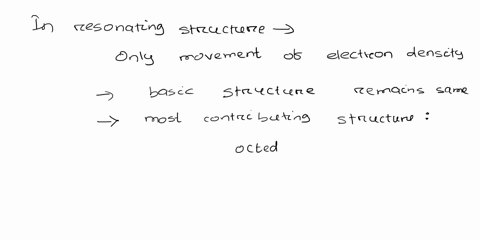 In resonating structure →
Only movement of electron density
→ basic structure remains same
→ most contributing structure :
octed